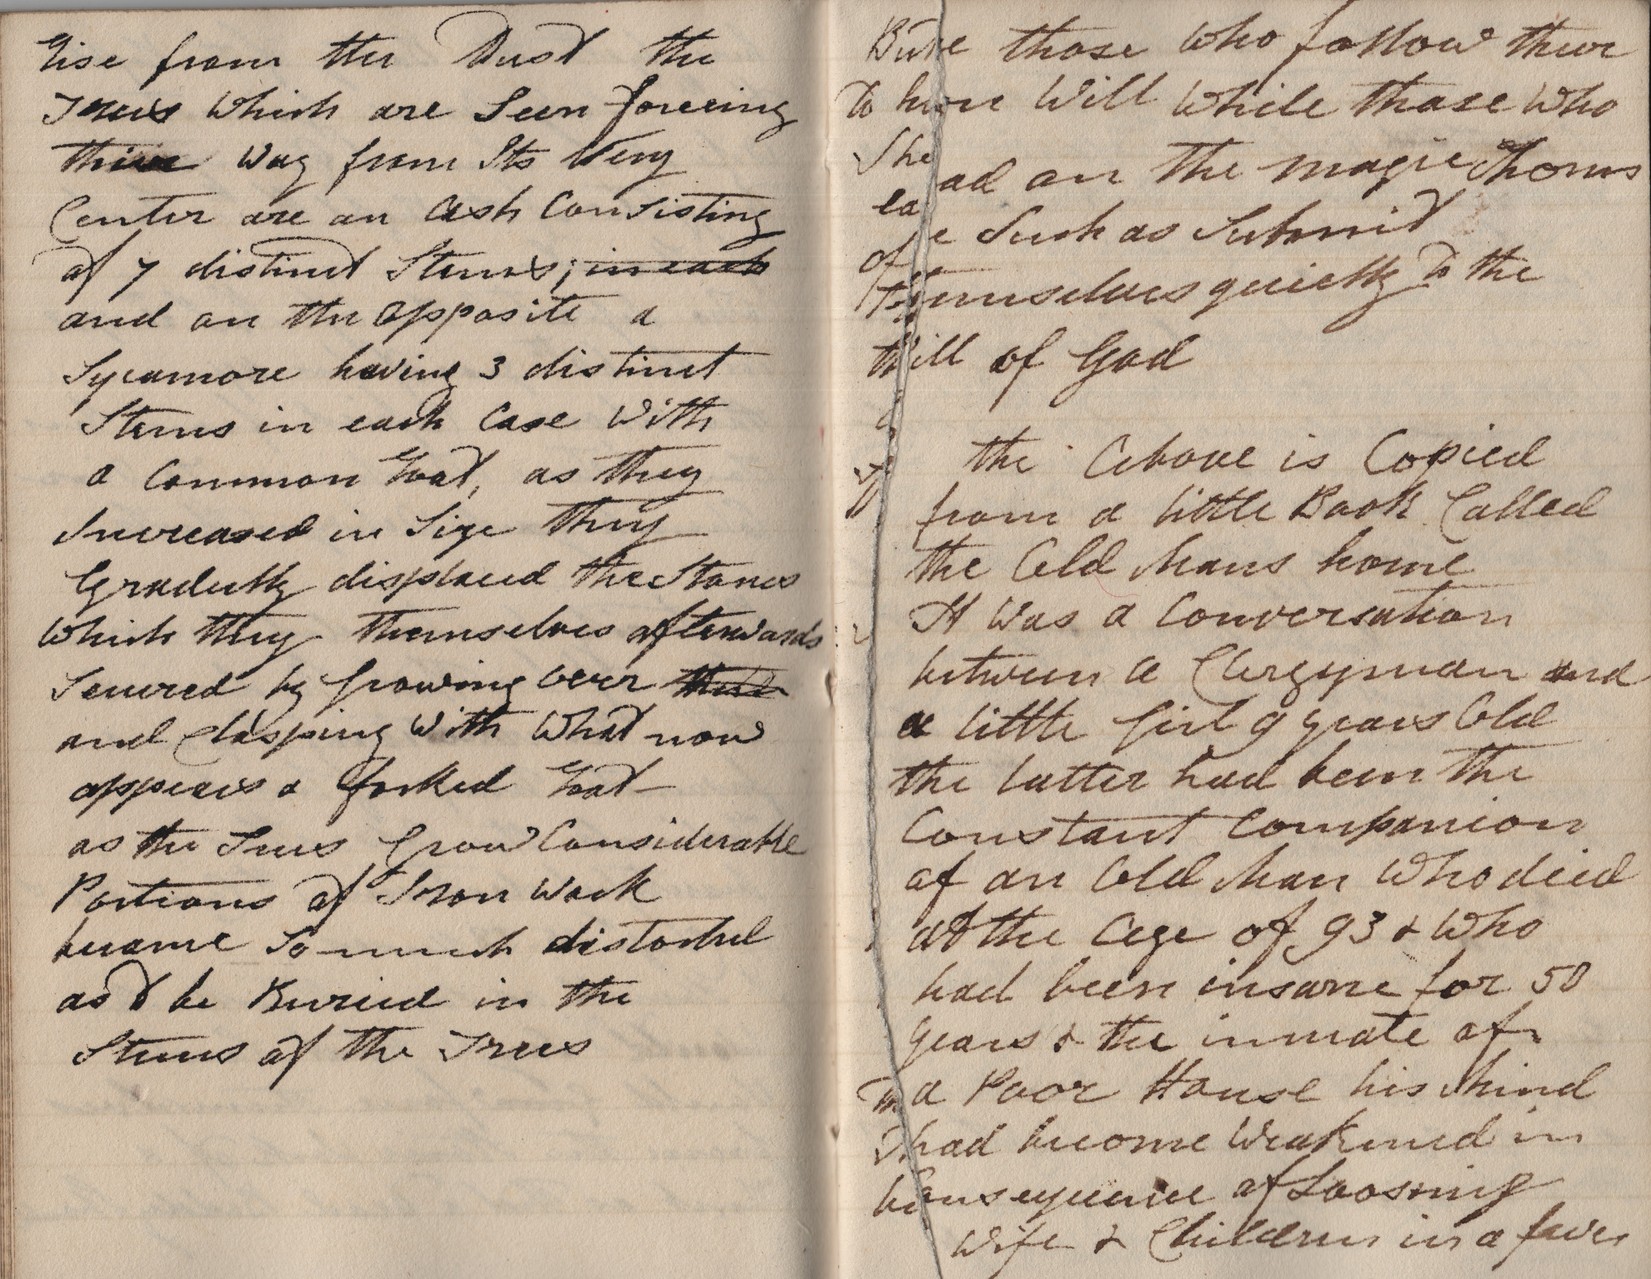 Rise from the Dust the
Trees which are Seen forceing
thire way from Its Very
Center are an Ash Consisting
of 7 distinct Stems; in each
and on the opposite a
Sycamore having 3 distinct
Stems in each Case With
a Common Root, as they
Increased in Size they
Graduelly displaced the Stones
Which they themselves afterwards
Secured by Growing over
and Clasping With What now
appears a forked Root
as the Trees Grow Considerable
Portions of Iron Work
became So much distorted
as to be Buried in the
Stems of the Trees
those Who follow there
Will While those Who
ad on the magic thorns
e Such as Submit
themselves quietly to the
Will of God
the Above is Copied
from a little Book Called
the Old Mans home
It Was a Conversation
between a Clergyman and
a little Girl 9 years Old
the latter had been the
Constant Companion
of an Old Man Who died
at the Age of 93 & Who
had been insane for 50
years & the inmate of
a Poor House his Mind
had become Weakened in
Consequence of Loosing
Wife & Children in a fever